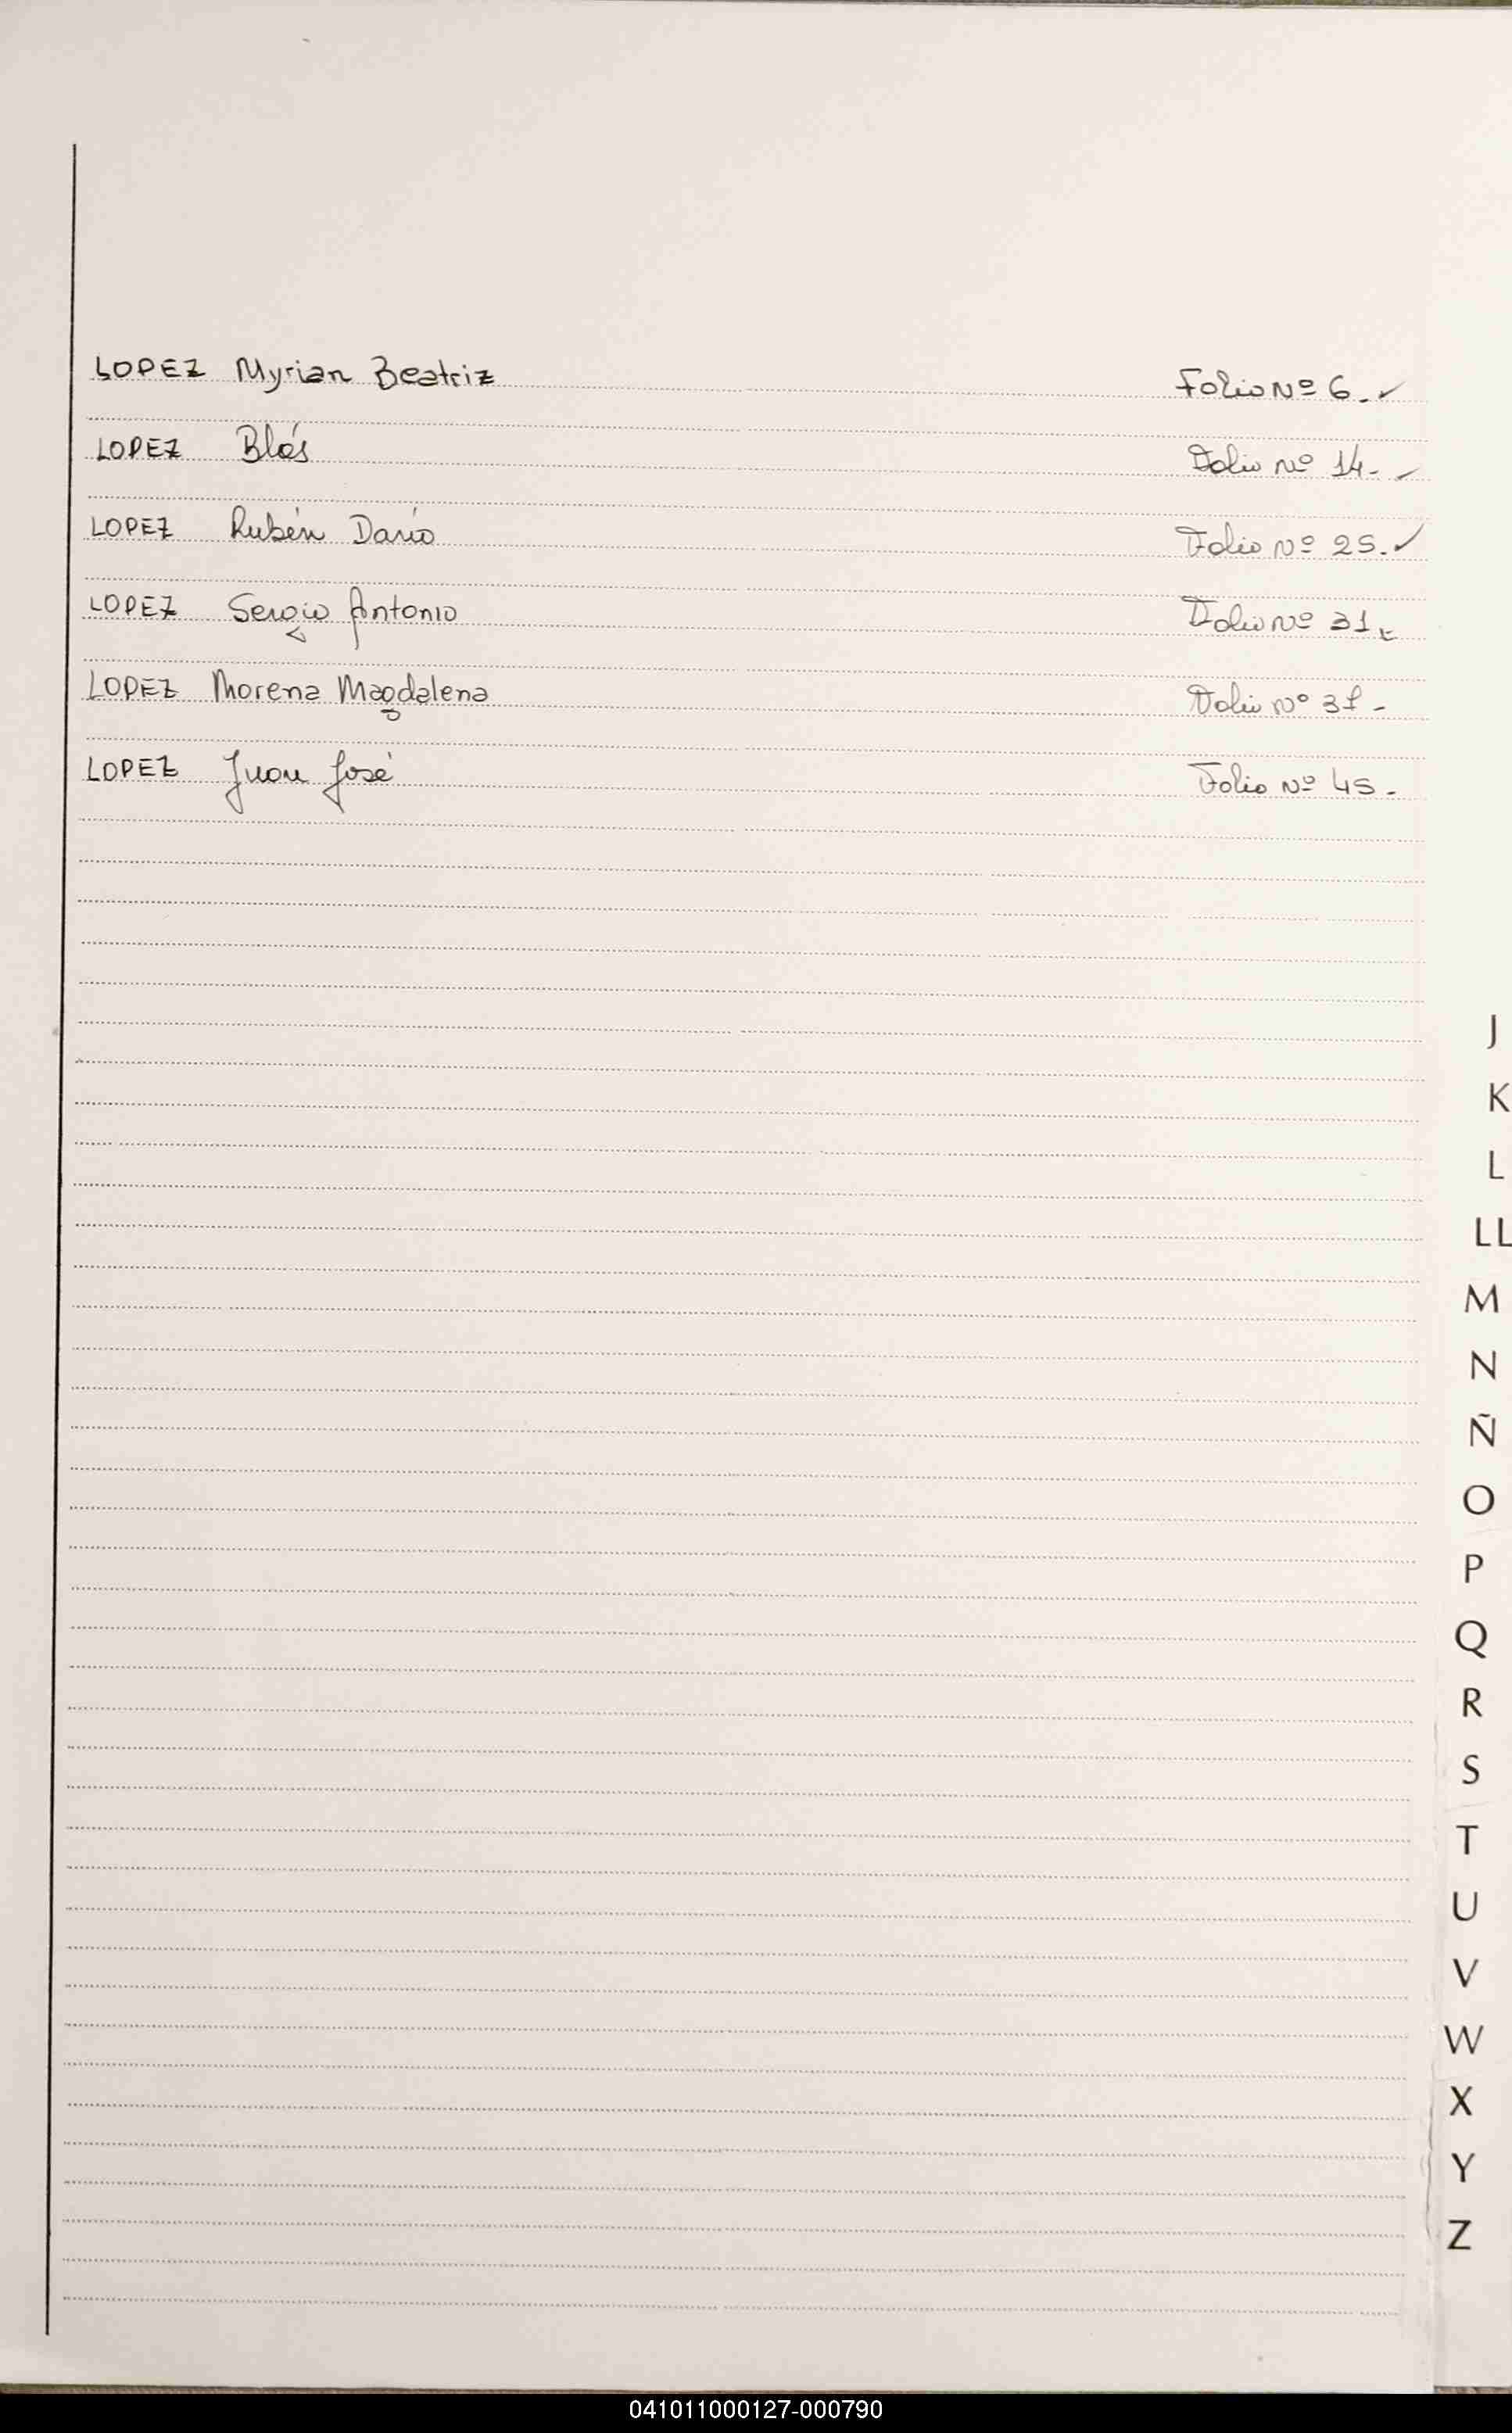 LOPEZ Myrian Beatriz Folio Nº 6.-
LOPEZ Blás Folio Nº 14.-
LOPEZ Rubén Darío Folio Nº 25.
LOPEZ Sergio Antonio Folio Nº 31
LOPEZ Morena Magdalena Folio Nº
LOPEZ Juan José Folio Nº 45.-
J
K
L
LL
M
N
Ñ
O
P
Q
R
S
T
U
V
W
X
Y
Z
041011000127-000790